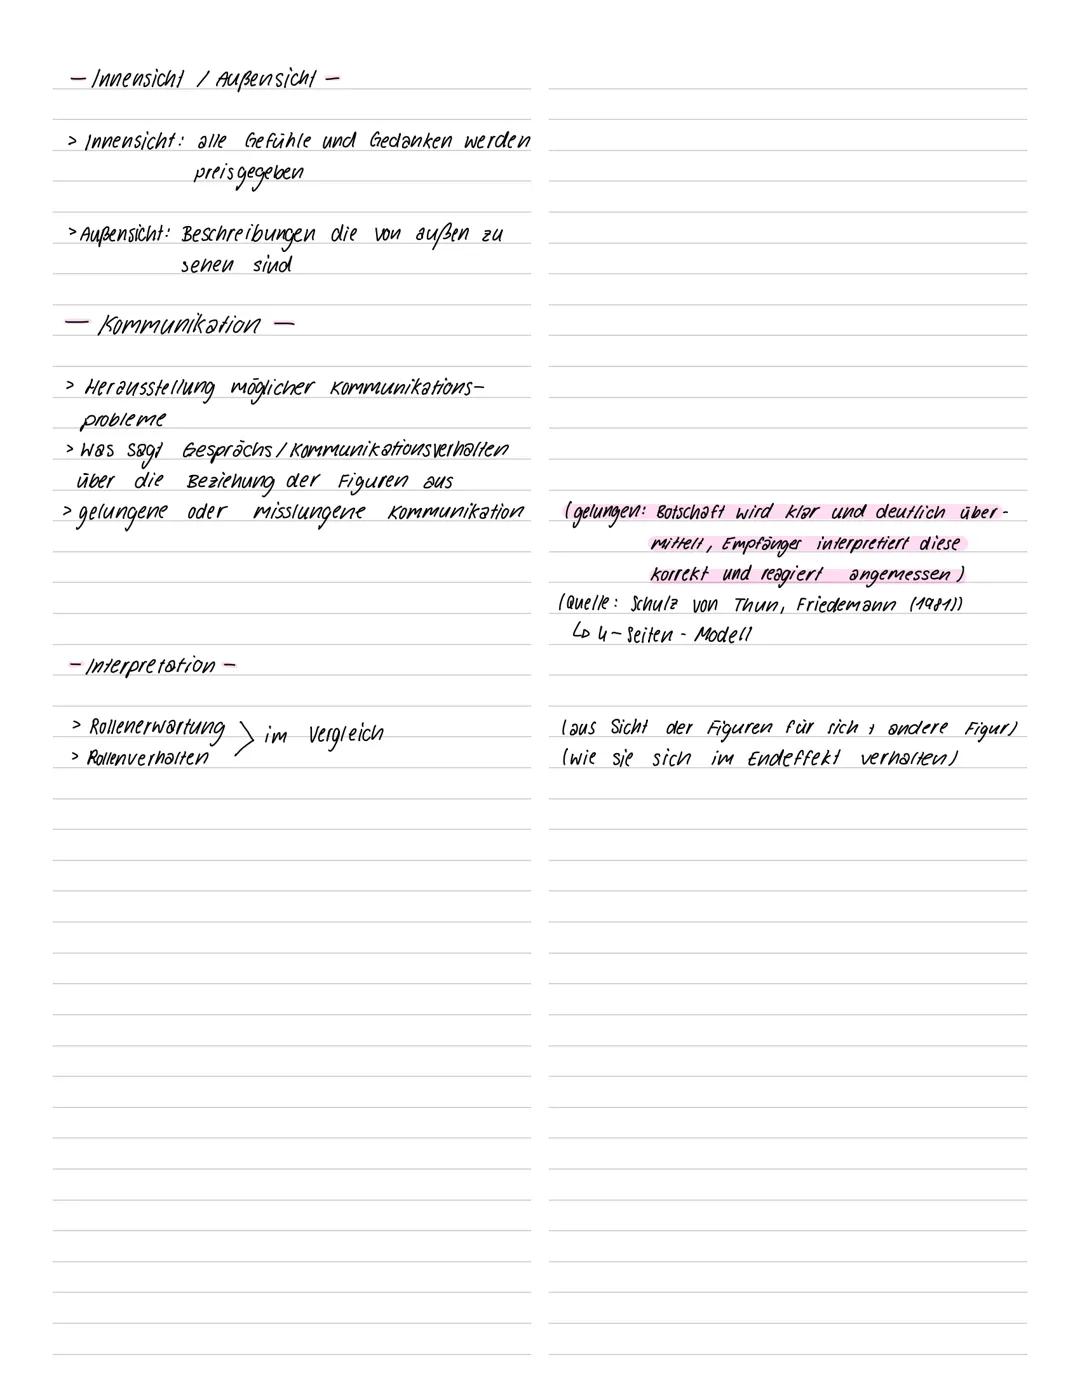 – Innensicht / Außensicht –
> Innensicht: alle Gefühle und Gedanken werden
preisgegeben
> Außensicht: Beschreibungen die von außen zu
sehen sind
– Kommunikation –
> Herausstellung möglicher Kommunikations-
probleme
> Was sagt Gesprächs/Kommunikationsverhalten
über die Beziehung der Figuren aus
> gelungene oder misslungene Kommunikation
(gelungen: Botschaft wird klar und deutlich über-
mittelt, Empfänger interpretiert diese
korrekt und reagiert angemessen)
(Quelle: Schulz von Thun, Friedemann (1981))
↳ 4-Seiten-Modell
– Interpretation –
> Rollenerwartung
> Rollenverhalten
> im Vergleich
(aus Sicht der Figuren für sich + andere Figur)
(wie sie sich im Endeffekt verhalten)